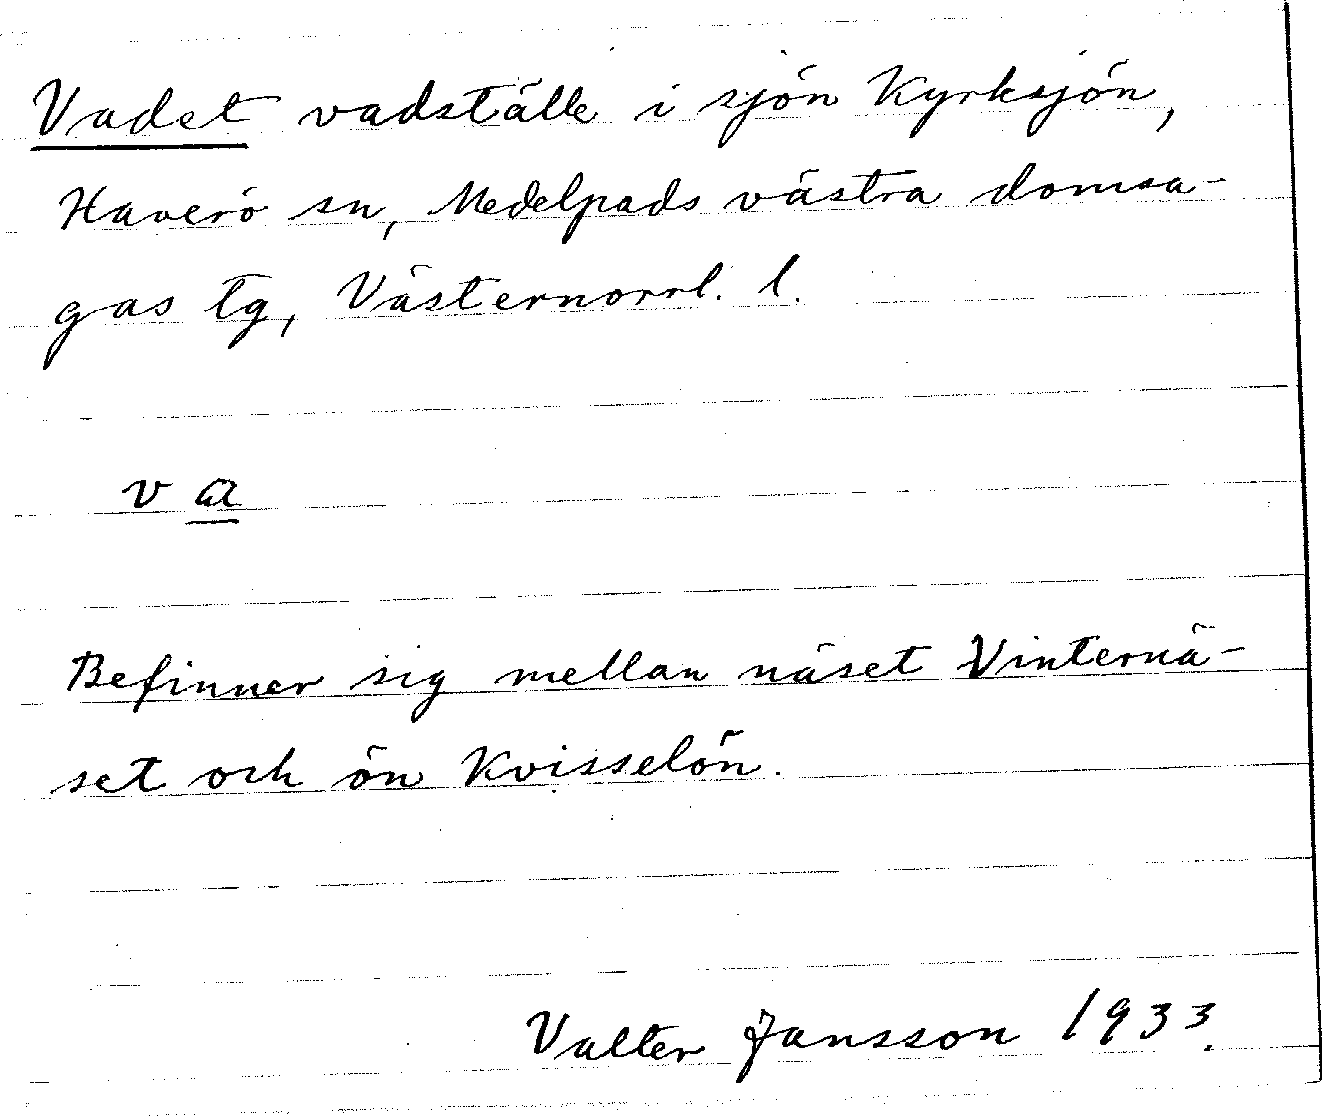 Vadet vadställe i sjön Kyrksjön,
Haverö sn, Medelpads västra domsa-
gas tg, Västernorrl. l.
v a
Befinner sig mellan näset Vinternä-
set och ön Kvisselön.
Valter Jansson 1933.